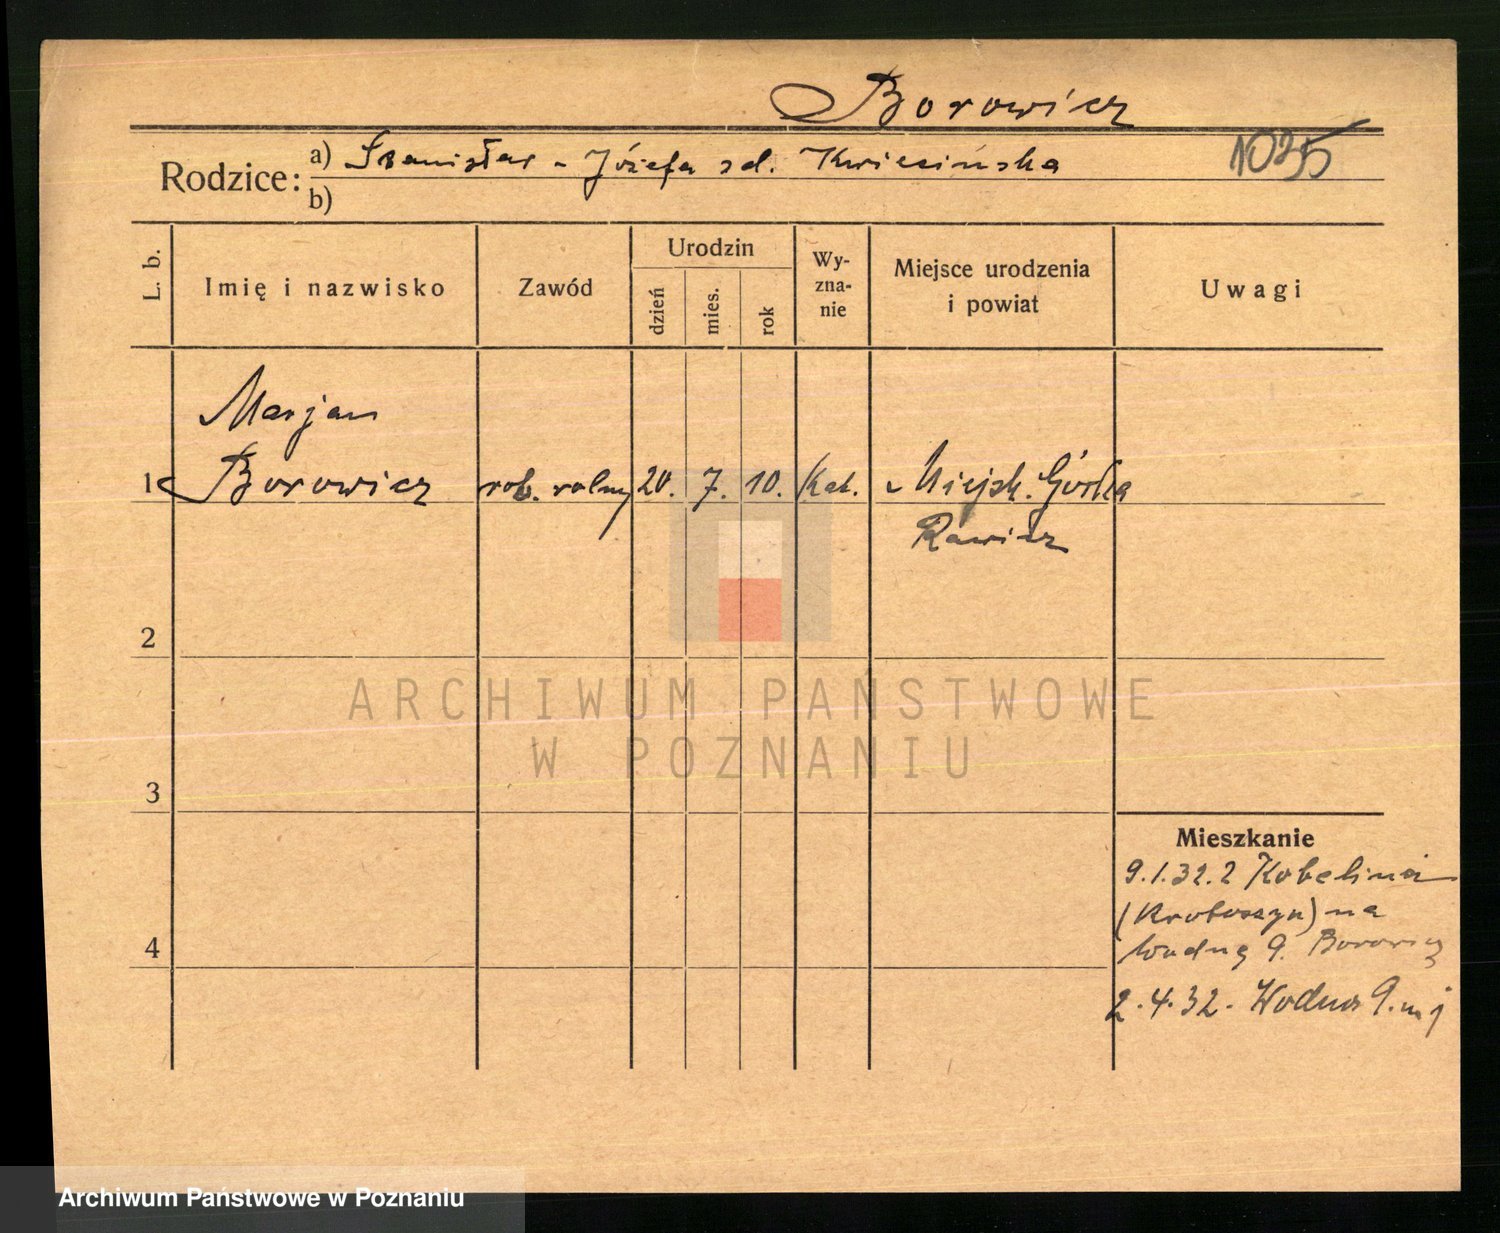 Borowicz
Rodzice: a) Stanisław - Józefa zd. Kwiecińska
1035
b)
L. b.
Imię i nazwisko
Zawód
Urodzin
dzień
mies.
rok
Wy-
zna-
nie
Miejsce urodzenia
i powiat
Uwagi
Marjan
1 Borowicz rob. rolny 20. 7. 10. Kat. Miejsk. Górka
Rawicz
2
3
4
Mieszkanie
9.1.32. z Kobelina
(Krotoszyn) na
Wodną 9. Borowicz
2.4.32. Wodna 9.
ARCHIWUM PAŃSTWOWE
W POZNANIU
Archiwum Państwowe w Poznaniu